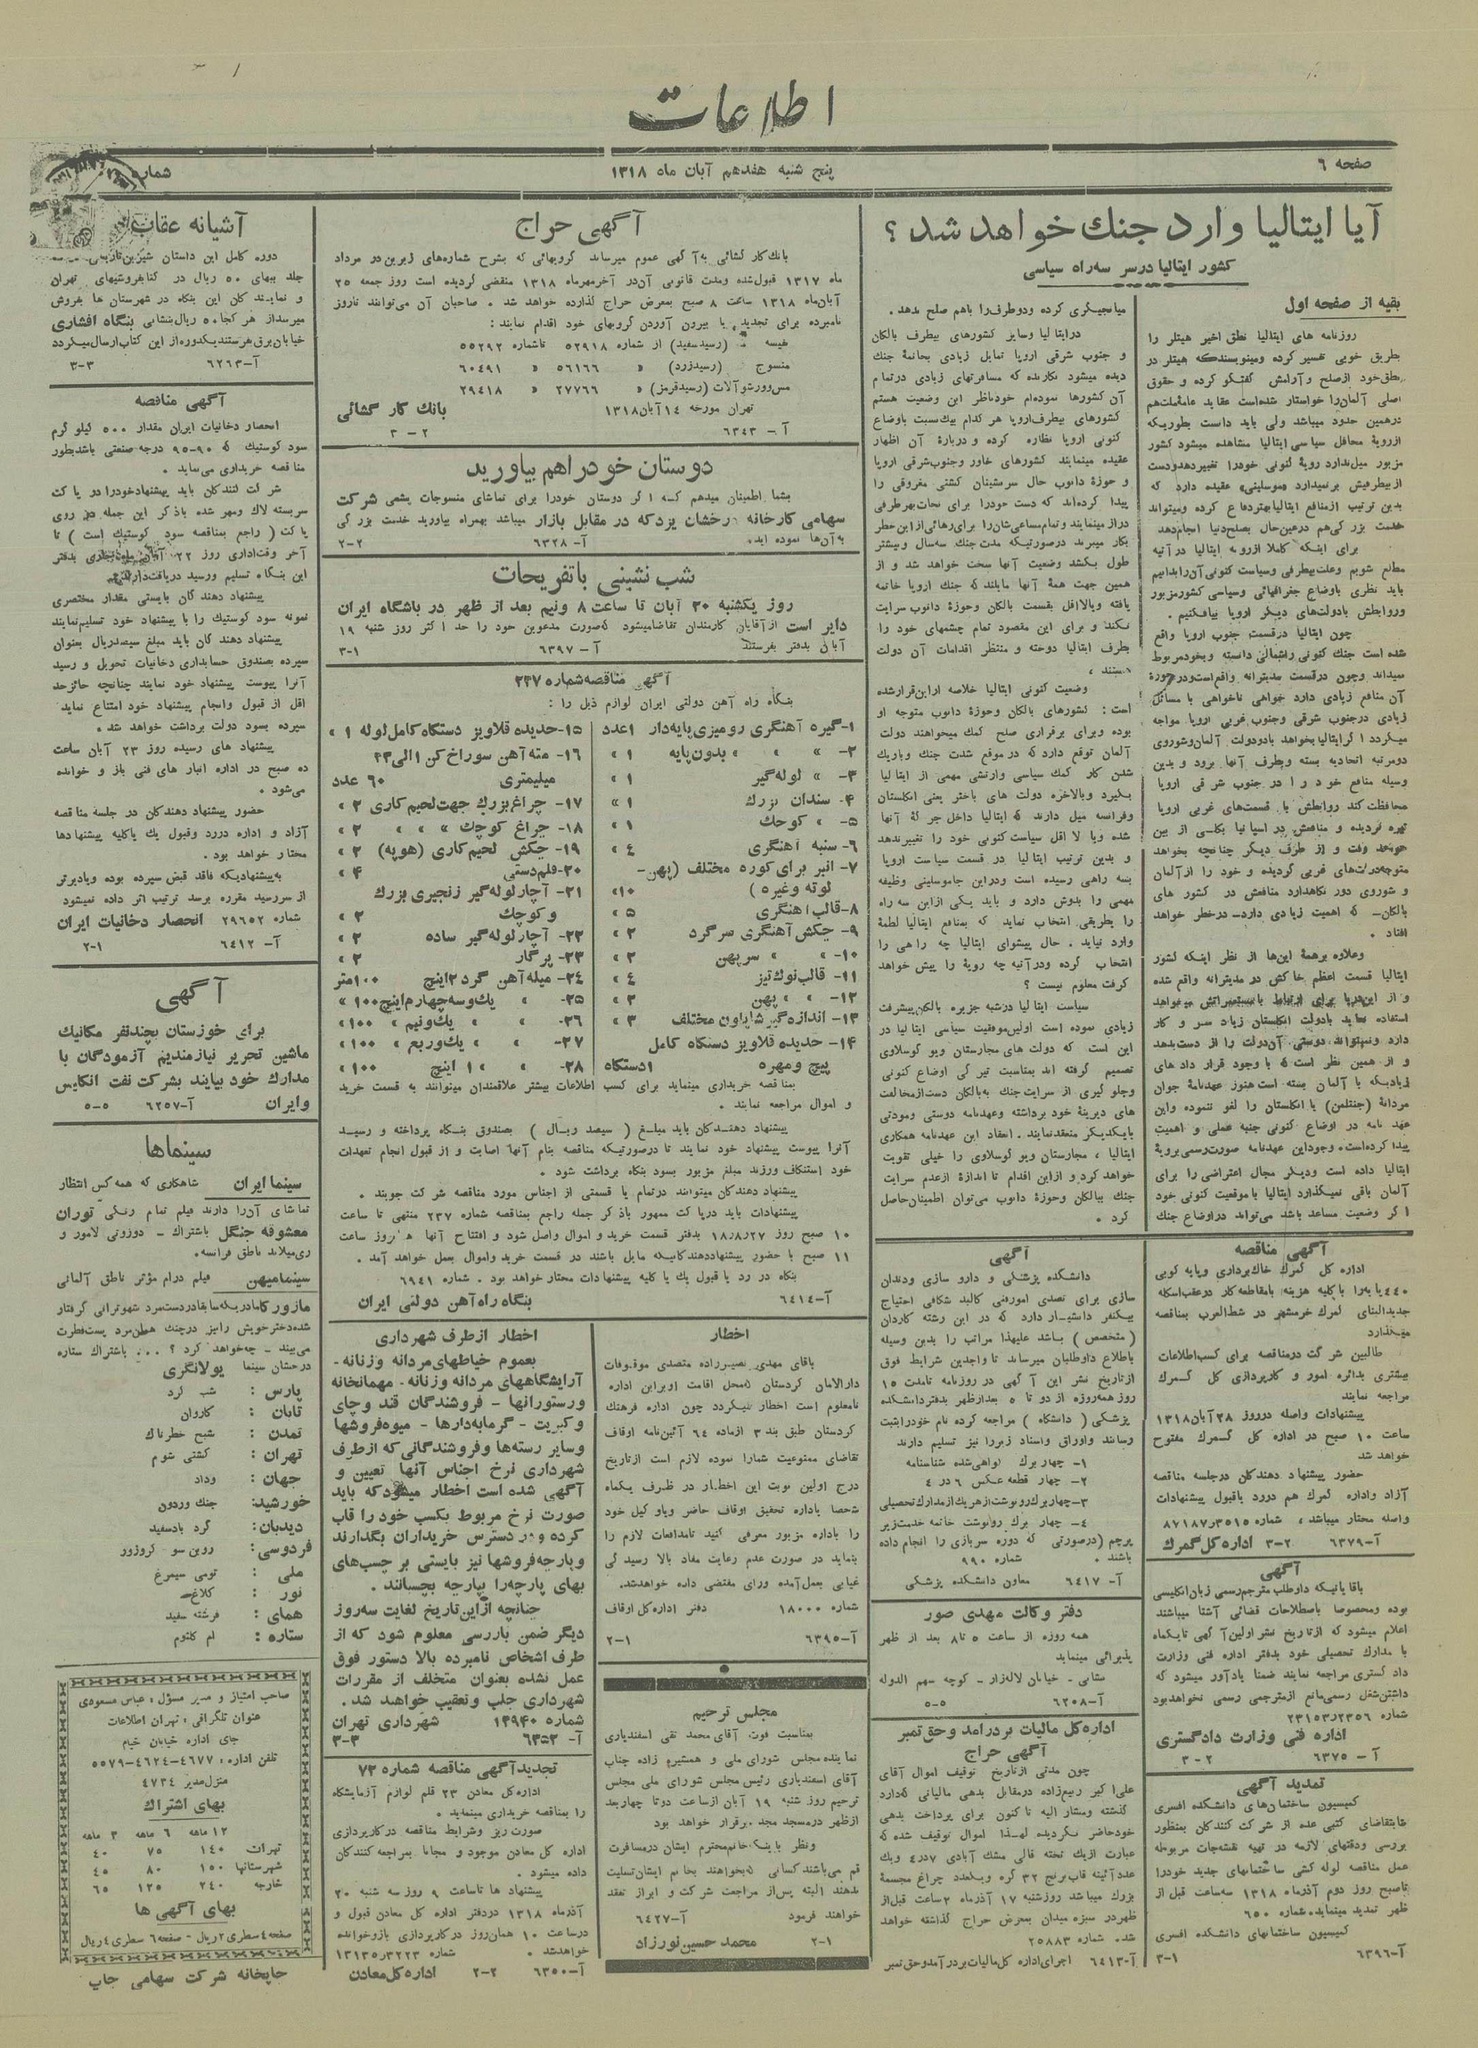 اطلاعات
صفحه ٦
پنج شنبه هفدهم آبان ماه ۱۳۱۸
شماره
آیا ایتالیا وارد جنك خواهد شد ؟
کشور ایتالیا درسر سه‌راه سیاسی
بقیه از صفحه اول
روزنامه های ایتالیا نطق اخیر هیتلر را
بطریق خوبی تفسیر کرده ومینویسندکه هیتلر در
نطق‌خود ازصلح وآرامش گفتگو کرده و حقوق
اصلی آلمان‌را خواستار شده‌است عقاید عامهٔ‌ملت‌هم
درهمین حدود میباشد ولی باید دانست بطوریکه
ازرویهٔ محافل سیاسی ایتالیا مشاهده میشود کشور
مزبور میل‌ندارد رویهٔ کنونی خودرا تغییردهدودست
ازبیطرفیش برنمیدارد «موسلینی» عقیده دارد که
بدین ترتیب ازمنافع ایتالیابهتردفاع کرده ومیتواند
خدمت بزر گی‌هم درعین‌حال بصلح‌دنیا انجام‌دهد
برای اینکه کاملا ازرویه ایتالیا درآتیه
مطلع شویم وعلت بیطرفی وسیاست کنونی آن‌رابدانیم
باید نظری باوضاع جغرافیائی وسیاسی کشورمزبور
وروابطش بادولت‌های دیگر اروپا بیافکنیم .
چون ایتالیا درقسمت جنوب اروپا واقع
شده است جنك کنونی راشمالی دانسته وبخودمربوط
نمیداند وچون درقسمت مدیترانه واقع‌است‌ودرحوزهٔ
آن منافع زیادی دارد خواهی ناخواهی با مسائل
زیادی درجنوب شرقی وجنوب غربی اروپا مواجه
میگردد ا گرایتالیابخواهد بادودولت آلمان‌وشوروی
دومرتبه اتحادیه بسته وبطرف آنها برود و بدین
وسیله منافع خود را در جنوب شرقی اروپا
محافظت کند روابطش با قسمت‌های غربی اروپا
تیره گردیده و منافعش در اسپانیا بکلی از بین
خواهد رفت و از طرف دیگر چنانچه بخواهد
متوجه‌دولت‌های غربی گردیده و خود را ازآلمان
و شوروی دور نگاهدارد منافعش در کشور های
بالکان- که اهمیت زیادی دارد- درخطر خواهد
افتاد .
وعلاوه برهمهٔ این‌ها از نظر اینکه کشور
ایتالیا قسمت اعظم خاکش در مدیترانه واقع شده
و از این‌دریا برای ارتباط با مستعمراتش میخواهد
استفاده نماید بادولت انگلستان زیاد سر و کار
دارد ونمیتواند دوستی آن‌دولت را از دست‌بدهد
و از همین نظر است که با وجود قرار داد های
زیادیکه با آلمان بسته است‌هنوز عهدنامهٔ جوان
مردانهٔ (جنتلمن) با انگلستان را لغو ننموده واین
عهد نامه در اوضاع کنونی جنبه عملی و اهمیت
پیدا کرده‌است. وجوداین عهدنامه صورت‌رسمی برویهٔ
ایتالیا داده است ودیگر مجال اعتراضی را برای
آلمان باقی نمیگذارد ایتالیا با موقعیت کنونی خود
ا گر وضعیت مساعد باشد می‌تواند دراوضاع جنك
میانجیگری کرده ودوطرف‌را باهم صلح بدهد.
درایتالیا وسایر کشورهای بیطرف بالکان
و جنوب شرقی اروپا تمایل زیادی بخاتمهٔ جنك
دیده میشود نگارنده که مسافرتهای زیادی درتمام
آن کشورها نموده‌ام خودناظر این وضعیت هستم
کشورهای بیطرف‌اروپا هر کدام بیك‌نسبت باوضاع
کنونی اروپا نظاره کرده و دربارهٔ آن اظهار
عقیده مینمایند کشورهای خاور وجنوب‌شرقی اروپا
و حوزهٔ دانوب حال سرنشینان کشتی مغروقی را
پیدا کرده‌اند که دست خودرا برای نجات بهرطرفی
دراز مینمایند وتمام‌مساعی‌شان‌را برای‌رهائی ازاین‌خطر
بکار میبرند درصورتیکه مدت جنك سه‌سال وبیشتر
طول بکشد وضعیت آنها سخت خواهد شد و از
همین جهت همهٔ آنها مایلند که جنك اروپا خاتمه
یافته ویالااقل بقسمت بالکان وحوزهٔ دانوب سرایت
نکند و برای این مقصود تمام چشمهای خود را
بطرف ایتالیا دوخته و منتظر اقدامات آن دولت
هستند ،
وضعیت کنونی ایتالیا خلاصه ازاین‌قرارشده
است : کشورهای بالکان وحوزهٔ دانوب متوجه او
بوده وبرای برقراری صلح کمك میخواهند دولت
آلمان توقع دارد که در موقع شدت جنك وباریك
شدن کار کمك سیاسی وارتشی مهمی از ایتالیا
بگیرد وبالاخره دولت های باختر یعنی انگلستان
وفرانسه میل دارند که ایتالیا داخل جر گهٔ آنها
شده ویا لا اقل سیاست کنونی خود را تغییرندهد
و بدین ترتیب ایتالیا در قسمت سیاست اروپا
بسه راهی رسیده است ودراین جاموسلینی وظیفه
مهمی را بدوش دارد و باید یکی ازاین سه راه
را بطریقی انتخاب نماید که بمنافع ایتالیا لطمهٔ
وارد نیاید . حال پیشوای ایتالیا چه راهی را
انتخاب کرده ودرآتیه چه رویهٔ را پیش خواهد
گرفت معلوم نیست ؟
سیاست ایتالیا درشبه جزیره بالکان‌پیشرفت
زیادی نموده است اولین‌موفقیت سیاسی ایتالیا در
این است که دولت های مجارستان ویو گوسلاوی
تصمیم گرفته اند بمناسبت تیر گی اوضاع کنونی
وجلو گیری از سرایت جنك به‌بالکان دست‌ازمخالفت
های دیرینهٔ خود برداشته وعهدنامه دوستی ومودتی
بایکدیگر منعقدنمایند . انعقاد این عهدنامه همکاری
ایتالیا ، مجارستان ویو گوسلاوی را خیلی تقویت
خواهد کرد و ازاین اقدام تا اندازهٔ ازعدم سرایت
جنك ببالکان وحوزهٔ دانوب می‌توان اطمینان‌حاصل
کرد .
آگهی مناقصه
اداره کل گمرك خاکبرداری وپایه کوبی
۴۴۰پایه‌را با کلیه هزینه بامقاطعه کار درعقب‌اسکله
جدیدالبنای گمرك خرمشهر در شط‌العرب بمناقصه
میگذارد
طالبین شر کت درمناقصه برای کسب‌اطلاعات
بیشتری بدائره امور و کارپردازی کل گمرك
مراجعه نمایند
پیشنهادات واصله درروز ۲۸ آبان‌۱۳۱۸
ساعت ۱۰ صبح در اداره کل گمرك مفتوح
خواهد شد
حضور پیشنهاد دهندکان درجلسه مناقصه
آزاد واداره گمرك هم دررد یاقبول پیشنهادات
واصله مختار میباشد ، شماره ۸۷۱۸۷٫۳۵۱۵
آ-۶۳۷۹ ۲-۳ اداره کل گمرك
آگهی
باقایانیکه داوطلب مترجم‌رسمی زبان‌انگلیسی
بوده ومخصوصا باصطلاحات قضائی آشنا میباشند
اعلام میشود که ازتاریخ نشر اولین‌آ گهی تایکماه
با مدارك تحصیلی خود بدفتر اداره فنی وزارت
داد گستری مراجعه نمایند ضمنا یادآور میشود که
داشتن‌شغل رسمی‌مانع ازمترجمی رسمی نخواهدبود
شماره ۲۳۱۵۳٫۲۳۵۶
اداره فنی وزارت دادگستری
آ - ۶۳۷۵ ۲ - ۳
تمدید آگهی
کمیسیون ساختمان‌های دانشکده افسری
بنابتقاضای کتبی عده از شرکت کنندگان بمنظور
بررسی ودقتهای لازمه در تهیه نقشه‌جات مربوطه
عمل مناقصه لوله کشی ساختمانهای جدید خودرا
تاصبح روز دوم آذرماه ۱۳۱۸ سه‌ساعت قبل از
ظهر تمدید مینماید. شماره ۶۵۰
کمیسیون ساختمانهای دانشکده افسری
آ-۶۳۹۶ ۱-۳
آگهی
دانشکده پزشکی و دارو سازی ودندان
سازی برای تصدی امورفنی کالبد شکافی احتیاج
بیکنفر دانشیار دارد که در این رشته کاردان
(متخصص) باشد علیهذا مراتب را بدین وسیله
باطلاع داوطلبان میرساند تا واجدین شرایط فوق
ازتاریخ نشر این آ گهی در روزنامه تامدت ۱۵
روز همه‌روزه از دو تا ۵ بعدازظهر بدفتردانشکده
پزشکی ( دانشگاه ) مراجعه کرده نام خودراثبت
وسانند واوراق واسناد زیررا نیز تسلیم دارند
۱- چهار برك گواهی‌شده شناسنامه
۲- چهار قطعه عکس ۶ در ۴
۳-چهاربرك‌رونوشت‌ازهریك‌ازمدارك‌تحصیلی
۴- چهار برك رونوشت خاتمه خدمت‌زیر
پرچم (درصورتی که دوره سربازی را انجام داده
باشند . شماره ۹۹۰
آ- ۶۴۱۷ معاون دانشکده پزشکی
دفتر وکالت مهدی صور
همه روزه از ساعت ۵ تا ۸ بعد از ظهر
پذیرائی مینماید
نشانی - خیابان لاله‌زار - کوچه سهم الدوله
آ-۶۲۰۸ ۵-۵
اداره‌کل مالیات بردرامد وحق تمبر
آگهی حراج
چون مدتی ازتاریخ توقیف اموال آقای
علی‌اکبر رحیم‌زاده درمقابل بدهی مالیاتی که‌دارد
گذشته ومشار الیه تاکنون برای پرداخت بدهی
خودحاضر نگردیده لهذا اموال توقیف شده که
عبارت ازیك تخته قالی مشك آبادی ۷در۴ ویك
عدد آئینه قاب برنج ۳۲ گره ویکعدد چراغ مجسمهٔ
بزرك میباشد روزشنبه ۱۷ آذرماه ۲ساعت قبل‌از
ظهردر سبزه میدان بمعرض حراج گذاشته خواهد
شد. شماره ۲۵۸۸۳
آ-۶۴۱۳ اجرای اداره کل‌مالیات بردرآمدوحق‌تمبر
آگهی حراج
بانك‌کار گشائی به‌آ گهی عموم میرساند گروبهائی که بشرح شماره‌های زیرین‌در مرداد
ماه ۱۳۱۷ قبول‌شده ومدت قانونی آن‌در آخرمهرماه ۱۳۱۸ منقضی گردیده است روز جمعه ۲۵
آبان‌ماه ۱۳۱۸ ساعت ۸ صبح بمعرض حراج گذارده خواهد شد . صاحبان آن می‌توانند تاروز
نامبرده برای تجدید، یا بیرون آوردن گروبهای خود اقدام نمایند :
نفیسه (رسیدسفید) از شماره ۵۲۹۱۸ تاشماره ۵۵۲۹۲
منسوج (رسیدزرد) « ۵۶۱۶۶ « ۶۰۴۹۱
مس‌وورشوآلات (رسیدقرمز) « ۲۷۷۶۶ « ۲۹۴۱۸
تهران مورخه ۱۴ آبان‌۱۳۱۸ بانك کار گشائی
آ - ۶۳۴۳ ۲ - ۳
دوستان خودراهم بیاورید
بشما اطمینان میدهم کسه ا گر دوستان خودرا برای تماشای منسوجات پشمی شرکت
سهامی کارخانه درخشان یزدکه در مقابل بازار میباشد بهمراه بیاورید خدمت بزر گی
به‌آن‌ها نموده اید. آ- ۶۳۲۸ ۲-۲
شب نشینی باتفریحات
روز یکشنبه ۲۰ آبان تا ساعت ۸ ونیم بعد از ظهر در باشگاه ایران
دایر است ازآقایان کارمندان تقاضامیشود که‌صورت مدعوین خود را حد اکثر روز شنبه ۱۹
آبان بدفتر بفرستند آ - ۶۳۹۷ ۱-۳
آگهی مناقصه‌شماره ۲۳۷
بنگاه راه آهن دولتی ایران لوازم ذیل را :
۱-گیره آهنگری رومیزی پایه‌دار ۱عدد
۲- » » » بدون‌پایه ۱ »
۳- » لوله‌گیر ۱ »
۴- سندان بزرك ۱ »
۵- » کوچك ۱ »
۶- سنبه آهنگری ۴ »
۷- انبر برای‌کوره مختلف (پهن-
لوله وغیره) ۱۰»
۸-قالب‌آهنگری ۵ »
۹- چکش آهنگری سرگرد ۲ »
۱۰- » » سرپهن ۲ »
۱۱- قالب‌نوك‌تیز ۴ »
۱۲- » » پهن ۲ »
۱۳- اندازه‌گیر شابلون مختلف ۳ »
۱۴- حدیده قلاویز دستگاه کامل
پیچ ومهره ۱دستگاه
۱۵-حدیده قلاویز دستگاه‌کامل‌لوله ۱ »
۱۶- مته‌آهن سوراخ‌کن ۱الی۲۳
میلیمتری ۶۰ عدد
۱۷- چراغ‌بزرك جهت‌لحیم‌کاری ۲ »
۱۸- چراغ کوچك » » » ۲ »
۱۹- چکش لحیم‌کاری (هویه) ۲ »
۲۰-قلم‌دستی ۴ »
۲۱- آچارلوله‌گیر زنجیری بزرك
وکوچك ۲ »
۲۲- آچارلوله‌گیر ساده ۲ »
۲۳- پرگار ۲ »
۲۴- میله‌آهن گرد ۲اینچ ۱۰۰متر
۲۵- » یك‌وسه‌چهارم‌اینچ ۱۰۰ »
۲۶- » » یك‌ونیم » ۱۰۰ »
۲۷- » » یك‌وربع » ۱۰۰ »
۲۸- » » ۱ اینچ ۱۰۰ »
بمناقصه خریداری مینماید برای کسب اطلاعات بیشتر علاقمندان میتوانند به قسمت خرید
و اموال مراجعه نمایند .
پیشنهاد دهنندکان باید مبلغ ( سیصد ریال ) بصندوق بنگاه پرداخته و رسید
آنرا پیوست پیشنهاد خود نمایند تا درصورتیکه مناقصه بنام آنها اصابت و از قبول انجام تعهدات
خود استنکاف ورزند مبلغ مزبور بسود بنگاه برداشت شود .
پیشنهاد دهندکان میتوانند درتمام یا قسمتی از اجناس مورد مناقصه شر کت جویند .
پیشنهادات باید درپا کت ممهور باذ کر جمله راجع بمناقصه شماره ۲۳۷ منتهی تا ساعت
۱۰ صبح روز ۱۸٫۸٫۲۷ بدفتر قسمت خرید و اموال واصل شود و افتتاح آنها همان‌روز ساعت
۱۱ صبح با حضور پیشنهاددهندکانیکه مایل باشند در قسمت خرید واموال بعمل خواهد آمد .
بنگاه در رد یا قبول یك یا کلیه پیشنهادات مختار خواهد بود . شماره ۶۹۴۱
آ-۶۴۱۴ بنگاه راه‌آهن دولتی ایران
اخطار
باقای مهدی نصیرزاده متصدی موقوفات
دارالامان کردستان که‌محل اقامت اوبراین اداره
نامعلوم است اخطار میگردد چون اداره فرهنك
کردستان طبق بند ۳ ازماده ۶۴ آئین‌نامه اوقاف
تقاضای ممنوعیت شمارا نموده لازم است ازتاریخ
درج اولین نوبت این اخطار در ظرف یکماه
شخصا باداره تحقیق اوقاف حاضر ویاو کیل خود
را باداره مزبور معرفی کنید تامدافعات لازم را
بنماید در صورت عدم رعایت مفاد بالا رسید گی
غیابی بعمل‌آمده ورای مقتضی داده خواهدشد.
شماره ۱۸۰۰۰ دفتر اداره‌کل اوقاف
آ-۶۳۹۵ ۱-۲
مجلس ترحیم
بمناسبت فوت آقای محمد تقی اسفندیاری
نماینده مجلس شورای ملی و همشیره زاده جناب
آقای اسفندیاری رئیس مجلس شورای ملی مجلس
ترحیم روز شنبه ۱۹ آبان ازساعت دوتا چهاربعد
ازظهر درمسجد مجد . برقرار خواهد بود
ونظر باینکه‌خانم‌محترم ایشان درمسافرت
قم می‌باشند کسانی که‌بخواهند بخانم ایشان‌تسلیت
بدهند البته پس‌از مراجعت شرکت و ابراز تفقد
خواهند فرمود آ-۶۴۲۷
۱-۲ محمد حسین نورزاد
اخطار ازطرف شهرداری
بعموم خیاطهای‌مردانه وزنانه-
آرایشگاههای مردانه وزنانه- مهمانخانه
ورستورانها - فروشندگان قند وچای
وکبریت - گرمابه‌دارها - میوه‌فروشها
وسایر رسته‌ها وفروشندگانی که ازطرف
شهرداری نرخ اجناس آنها تعیین و
آگهی شده است اخطار میشودکه باید
صورت نرخ مربوط بکسب خود را قاب
کرده ودر دسترس خریداران بگذارند
وپارچه‌فروشها نیز بایستی بر چسب‌های
بهای پارچه‌را بپارچه بچسبانند .
چنانچه ازاین‌تاریخ لغایت سه‌روز
دیگر ضمن بازرسی معلوم شود که از
طرف اشخاص نامبرده بالا دستور فوق
عمل نشده بعنوان متخلف از مقررات
شهرداری جلب وتعقیب خواهند شد.
شماره ۱۳۹۴۰ شهرداری تهران
آ- ۶۳۵۲ ۳-۳
تجدیدآگهی مناقصه شماره ۷۳
اداره‌کل معادن ۲۳ قلم لوازم آزمایشگاه
را بمناقصه خریداری مینماید .
صورت ریز وشرایط مناقصه درکارپردازی
اداره کل معادن موجود و مجانا بمراجعه کنندکان
داده میشود .
پیشنهاد ها تاساعت ۹ روز سه شنبه ۲۰
آذرماه ۱۳۱۸ دردفتر اداره کل معادن قبول و
درساعت ۱۰ همان‌روز درکارپردازی بازوخوانده
خواهدشد . شماره ۱۳۱۳۵٫۳۲۲۳
آ-۶۳۵۰ ۲-۲ اداره‌کل‌معادن
آشیانه عقاب
دوره کامل این داستان شیرین‌تاریخی
جلد ببهای ۵۰ ریال در کتابفروشیهای تهران
و نمایندکان این بنگاه در شهرستان ها بفروش
میرسداز هر کجا ۵۰ ریال‌بنشانی بنگاه افشاری
خیابان‌برق‌هرسندیکدوره‌از این کتاب‌ارسال‌میگردد
آ-۶۲۶۳ ۳-۳
آگهی مناقصه
انحصار دخانیات ایران مقدار ۵۰۰ کیلو گرم
سود کوستیك که ۹۰-۹۵ درجه صنعتی باشدبطور
مناقصه خریداری می‌نماید.
شر کت کنندکان باید پیشنهادخودرا درپا کت
سربسته لاك ومهر شده باذ کر این جمله در روی
پاکت ( راجع بمناقصه سود کوستیك است ) تا
آخر وقت‌اداری روز ۲۲ آبان بدفتر
این بنگاه تسلیم ورسید دریافت‌دارند.
پیشنهاد دهندکان بایستی مقدار مختصری
نمونه سود کوستیك را با پیشنهاد خود تسلیم‌نمایند
پیشنهاد دهندکان باید مبلغ سیصدریال بعنوان
سپرده بصندوق حسابداری دخانیات تحویل و رسید
آنرا پیوست پیشنهاد خود نمایند چنانچه حائزحد
اقل از قبول وانجام پیشنهاد خود امتناع نماید
سپرده بسود دولت برداشت خواهد شد .
پیشنهاد های رسیده روز ۲۳ آبان ساعت
ده صبح در اداره انبار های فنی باز و خوانده
می‌شود .
حضور پیشنهاد دهندکان در جلسه مناقصه
آزاد و اداره دررد وقبول یك یاکلیه پیشنهادها
مختار خواهد بود .
به‌پیشنهادیکه فاقد قبض سپرده بوده ویادیرتر
از سررسید مقرره برسد ترتیب اثر داده نمیشود
شماره ۲۹۶۵۲ انحصار دخانیات ایران
آ- ۶۴۱۲ ۱-۲
آگهی
برای خوزستان بچندنفر مکانیك
ماشین تحریر نیازمندیم آزمودگان با
مدارك خود بیایند بشرکت نفت انگلیس
وایران آ-۶۲۵۷ ۵-۵
سینماها
سینما ایران شاهکاری که همه‌کس انتظار
تماشای آن‌را دارند فیلم تمام رنگی توران
معشوقه جنگل باشتراك - دوروتی لامور و
ری‌میلاند ناطق فرانسه.
سینمامیهن فیلم درام مؤثر ناطق آلمانی
مازورکا مادریکه سابقادردست‌مرد شهوترانی گرفتار
شده‌دخترخویش رانیز درچنك همان‌مرد پست‌فطرت
می‌بیند - چه‌خواهد کرد ؟ ... باشتراك ستاره
درخشان سینما پولانگری
پارس : شب گرد
تابان : کاروان
تمدن : شبح خطرناك
تهران : کشتی شوم
جهان : وداد
خورشید: جنك وردون
دیدبان: گرد بادسفید
فردوسی: روبن سو کروزور
ملی : تومی سیمرغ
نور : کلاغ
همای : فرشته سفید
ستاره : ام کلثوم
صاحب امتیاز و مدیر مسؤل : عباس مسعودی
عنوان تلگرافی : تهران اطلاعات
جای اداره خیابان خیام
تلفن اداره : ۴۶۷۷-۴۶۲۴-۵۵۷۹
منزل‌مدیر ۴۷۳۴
بهای اشتراك
۱۲ ماهه ۶ ماهه ۳ ماهه
تهران ۱۴۰ ۷۵ ۴۰
شهرستانها ۱۵۰ ۸۰ ۴۵
خارجه ۲۴۰ ۱۲۵ ۶۵
بهای آگهی ها
صفحه ۴ سطری ۲ریال - صفحه ۶ سطری ۴ریال
چاپخانه شرکت سهامی چاپ